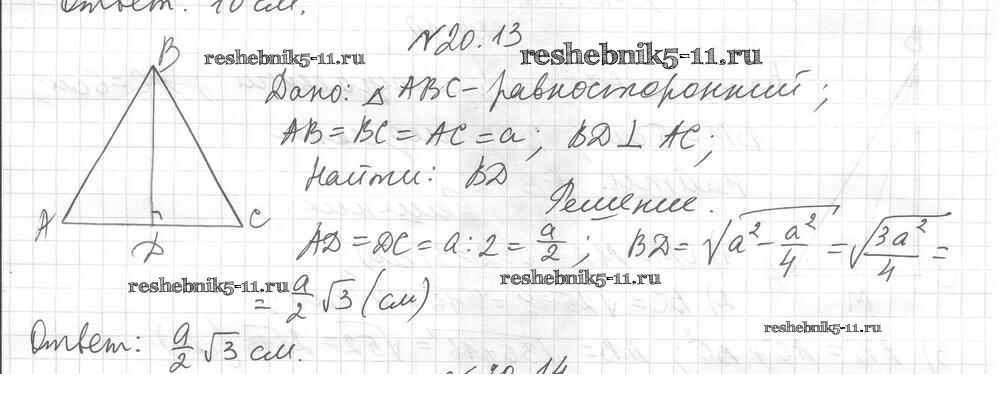 Ответ: 10 см.
№20.13
reshebnik5-11.ru reshebnik5-11.ru
B
Дано: △ ABC - равносторонний;
AB = BC = AC = a; BD ⊥ AC;
Найти: BD
Решение.
A D C
AD = DC = a : 2 = a/2; BD = √(a² - a²/4) = √(3a²/4) =
reshebnik5-11.ru reshebnik5-11.ru
= a/2 √3 (см)
reshebnik5-11.ru
Ответ: a/2 √3 см.
№20.14